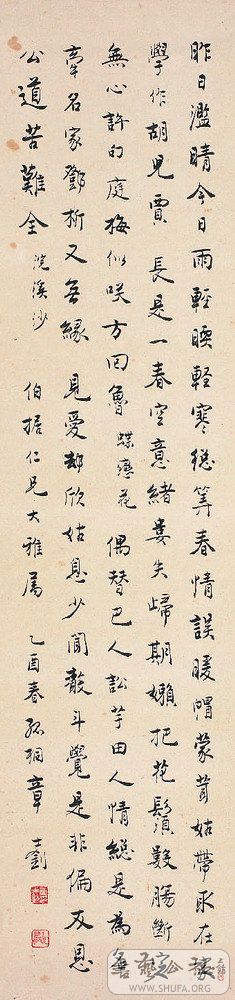 昨日濫晴今日雨輕暖輕寒總算春情誤暖帽蒙茸姑帶取在家
學作胡兒賈 長是一春空意緒婁失歸期嬾把花鬚數腸斷
無心許庭梅似咲方回魯 蝶戀花 偶替巴人訟芋田人情總是為
牽名家鄧析又無緣 見愛却欣姑息少聞斗覺是非偏友恩
公道苦難全 浣溪沙 伯据仁兄大雅屬 乙酉春孤桐章士釗
WWW.SHUFA.ORG